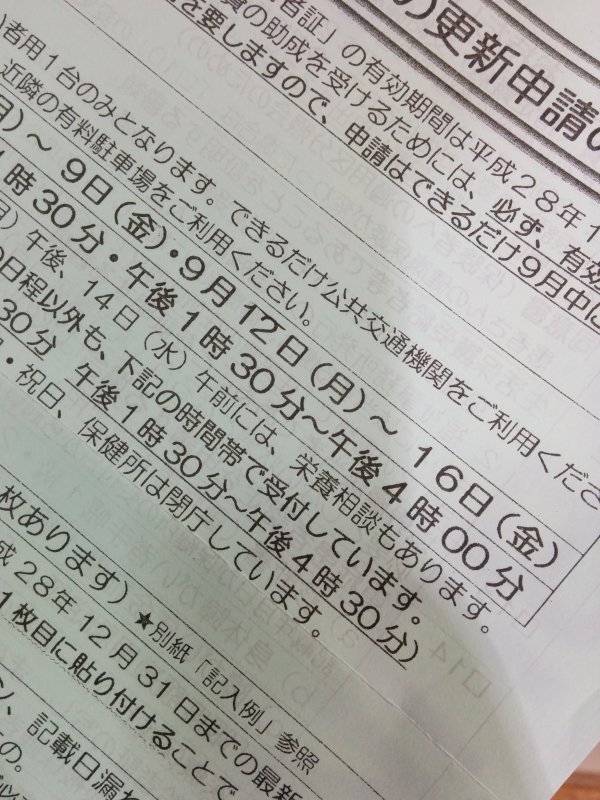 の更新申請の
者証」の有効期間は平成28年1
費の助成を受けるためには、必ず、有効
を要しますので、申請はできるだけ9月中に
者用1台のみとなります。できるだけ公共交通機関をご利用くださ
近隣の有料駐車場をご利用ください。
月)～ 9日(金)・9月12日(月)～ 16日(金)
1時30分・午後1時30分～午後4時00分
)午後、14日(水)午前には、栄養相談もあります。
の日程以外も、下記の時間帯で受付しています。
30分 午後1時30分～午後4時30分)
・祝日、保健所は閉庁しています。
枚あります) ★別紙「記入例」参照
成28年12月31日までの最新
1枚目に貼り付けることで
ン、記載日漏れ
の。